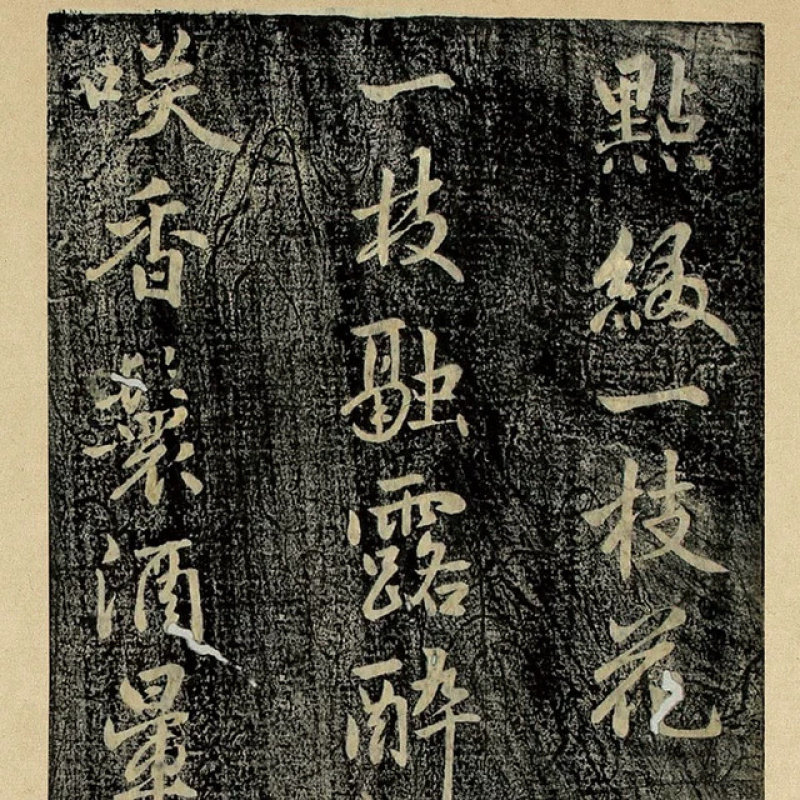 點綴一枝花
一枝融露醉
咲香鬟酒暈